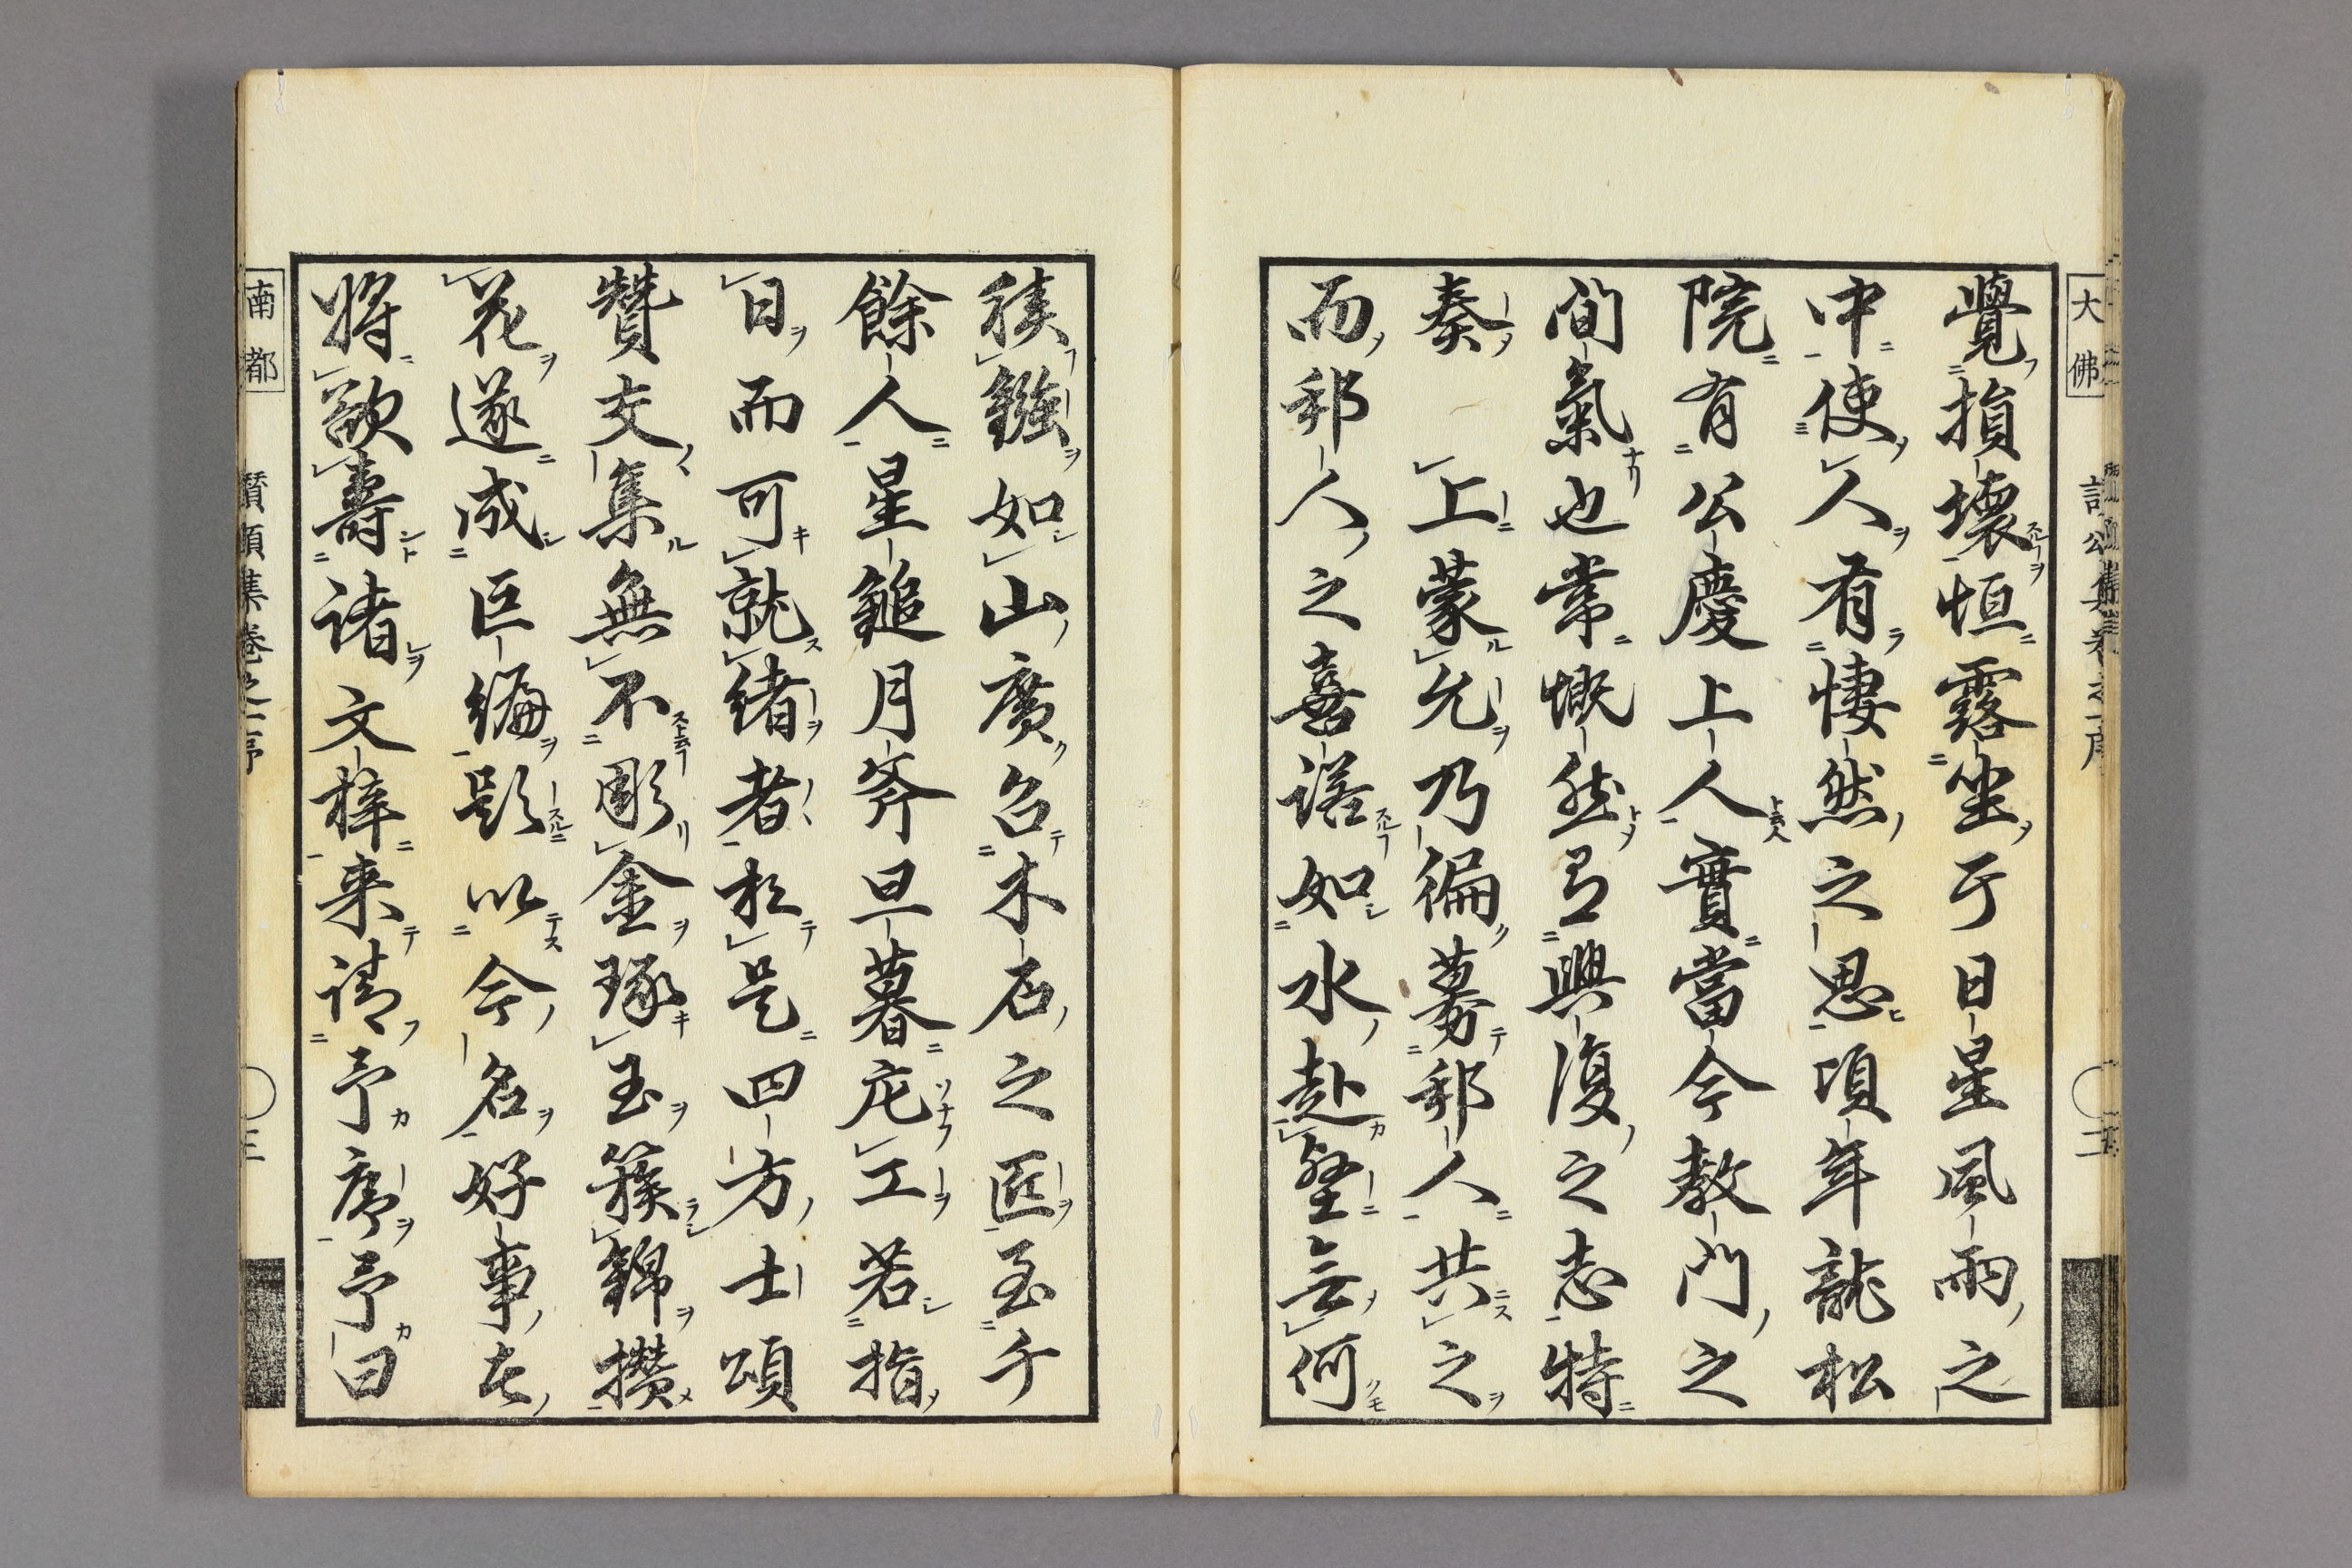 覺損壞恒露坐于日星風雨之
中使人有悽然之思頃年龍松
院有公慶上人實當今教門之
間氣也常慨然有興復之志特
奏　上蒙允乃徧募邦人共之
而邦人之喜諾如水赴壑無何
積鏹如山廣召木石之匠至千
餘人星鎚月斧旦暮庀工若指
日而可就緒者於是四方士頌
贊交集無不彫金琢玉簇錦攢
花遂成巨編題以今名好事在
將欲壽諸文梓来請予序予曰
大佛
南都
讃頌集卷之一序
三